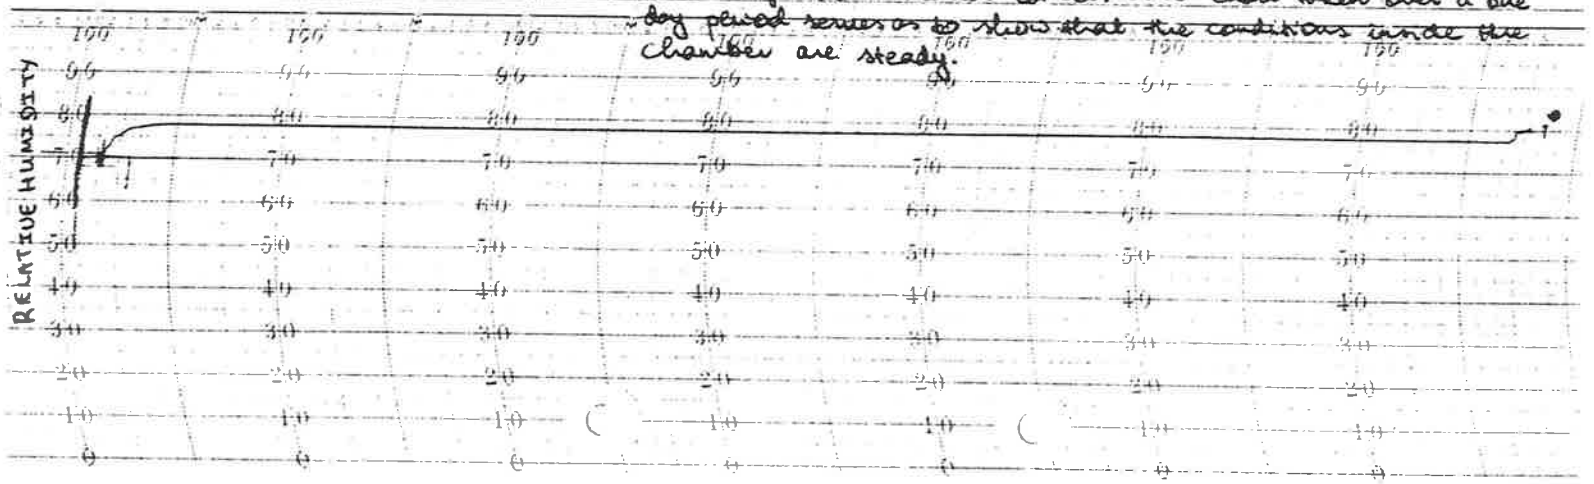 over a one
day period serves as to show that the conditions inside the
chamber are steady.
RELATIVE HUMIDITY
100 100 100 100 100 100 100
90 90 90 90 90 90 90
80 80 80 80 80 80 80
70 70 70 70 70 70 70
60 60 60 60 60 60 60
50 50 50 50 50 50 50
40 40 40 40 40 40 40
30 30 30 30 30 30 30
20 20 20 20 20 20 20
10 10 10 10 10 10 10
0 0 0 0 0 0 0